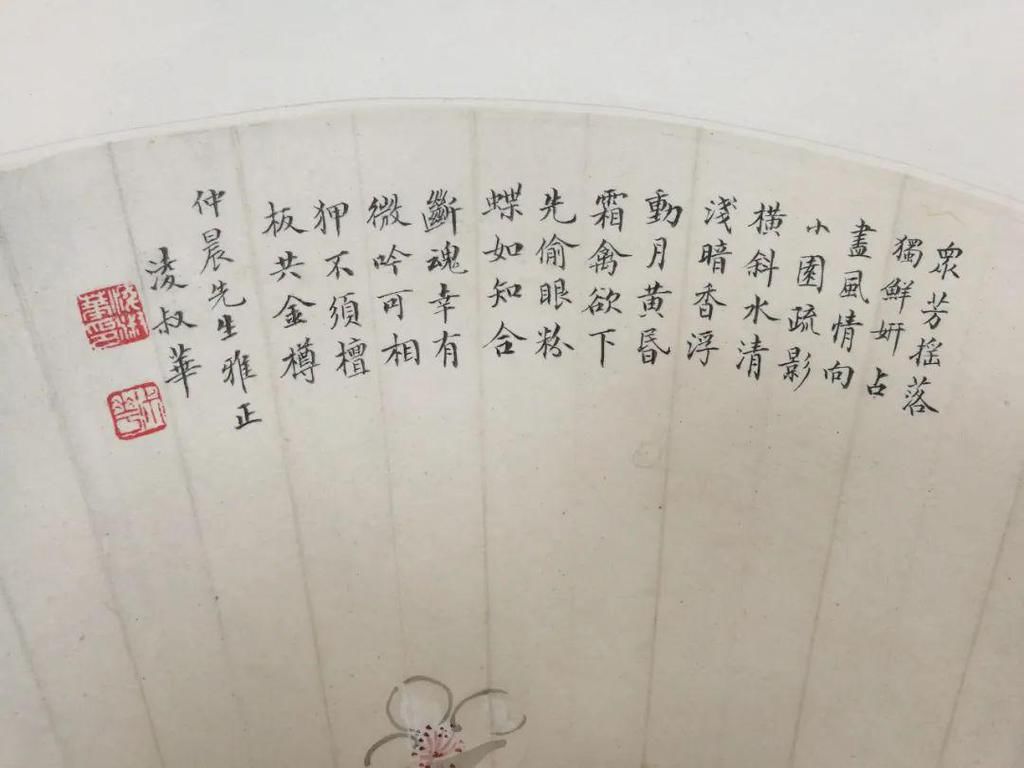 眾芳搖落
獨鮮妍占
盡風情向
小園疏影
橫斜水清
淺暗香浮
動月黃昬
霜禽欲下
先偷眼粉
蝶如知合
斷魂幸有
微吟可相
狎不須檀
板共金樽
仲晨先生雅正
淩叔華